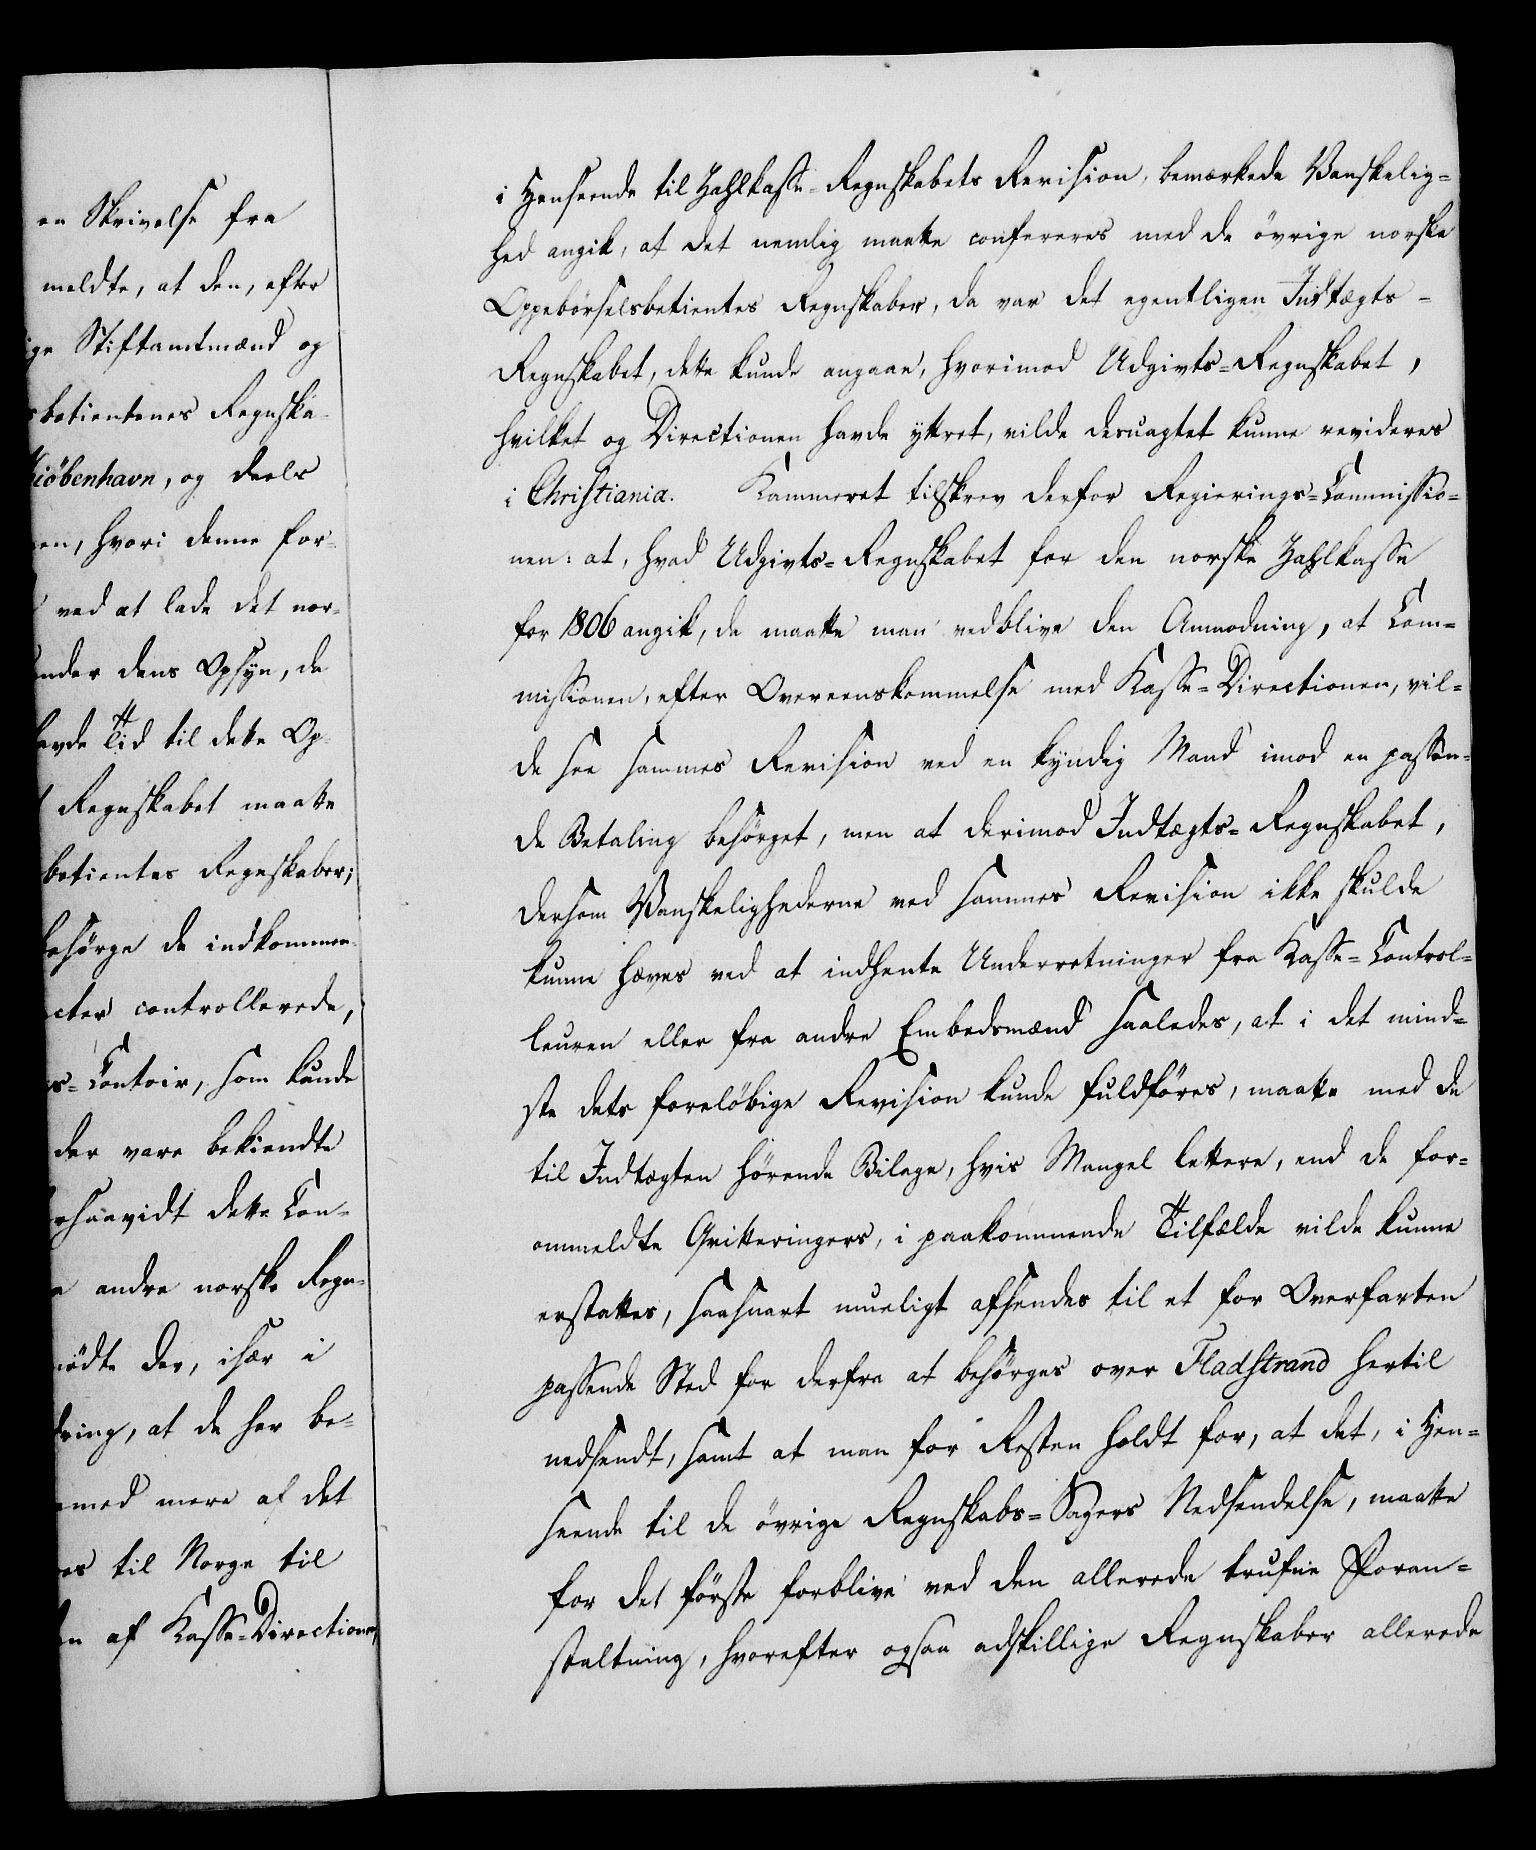 en Skrivelse fra
meldte, at den, efter
ige Stiftamtmænd og
sbetientenes Regnska-
Kiöbenhavn, og deels
en, hvori denne for-
ved at lade det nor-
under dens Opsyn, da
havde Tid til dette Op-
t Regnskabet maatte
betientes Regnskaber;
besörge de indkommen-
cter controllerede,
s-Contoir, som kunde
der vare bekiendte
orsaavidt dette Con-
e andre norske Regn-
mödte der, især i
dring, at de her be-
med mere af det
es til Norge til
en af Kasse-Directionen,
i Henseende til Zahlkasse-Regnskabets Revision, bemærkede Vanskelig-
hed angik, at det nemlig maatte confereres med de övrige norske
Oppebörselsbetientes Regnskaber, da var det egentligen Indtægts-
Regnskabet, dette kunde angaae, hvorimod Udgivts-Regnskabet,
hvilket og Directionen havde yttret, vilde desuagtet kunne revideres
i Christiania. Kammeret tilskrev derfor Regierings-Commissio-
nen: at, hvad Udgivts-Regnskabet for den norske Zahlkasse
for 1806 angik, da maatte man vedblive den Anmodning, at Com-
missionen, efter Overeenskommelse med Kasse-Directionen, vil-
de see sammes Revision ved en kyndig Mand imod en passen-
de Betaling besörget, men at derimod Indtægts-Regnskabet,
dersom Vanskelighederne ved sammes Revision ikke skulde
kunne hæves ved at indhente Underretninger fra Kasse-Control-
leuren eller fra andre Embedsmænd saaledes, at i det mind-
ste dets forelöbige Revision kunde fuldföres, maatte med de
til Indtægten hörende Bilage, hvis Mangel lettere, end de for-
ommeldte Qvitteringers, i paakommende Tilfælde vilde kunne
erstattes, saasnart mueligt afsendes til et for Overfarten
passende Sted for derfra at besörges over Fladstrand hertil
nedsendt, samt at man for Resten holdt for, at det, i Hen-
seende til de övrige Regnskabs-Sagers Nedsendelse, maatte
for det förste forblive ved den allerede trufne Foran-
staltning, hvorefter ogsaa adskillige Regnskaber allerede